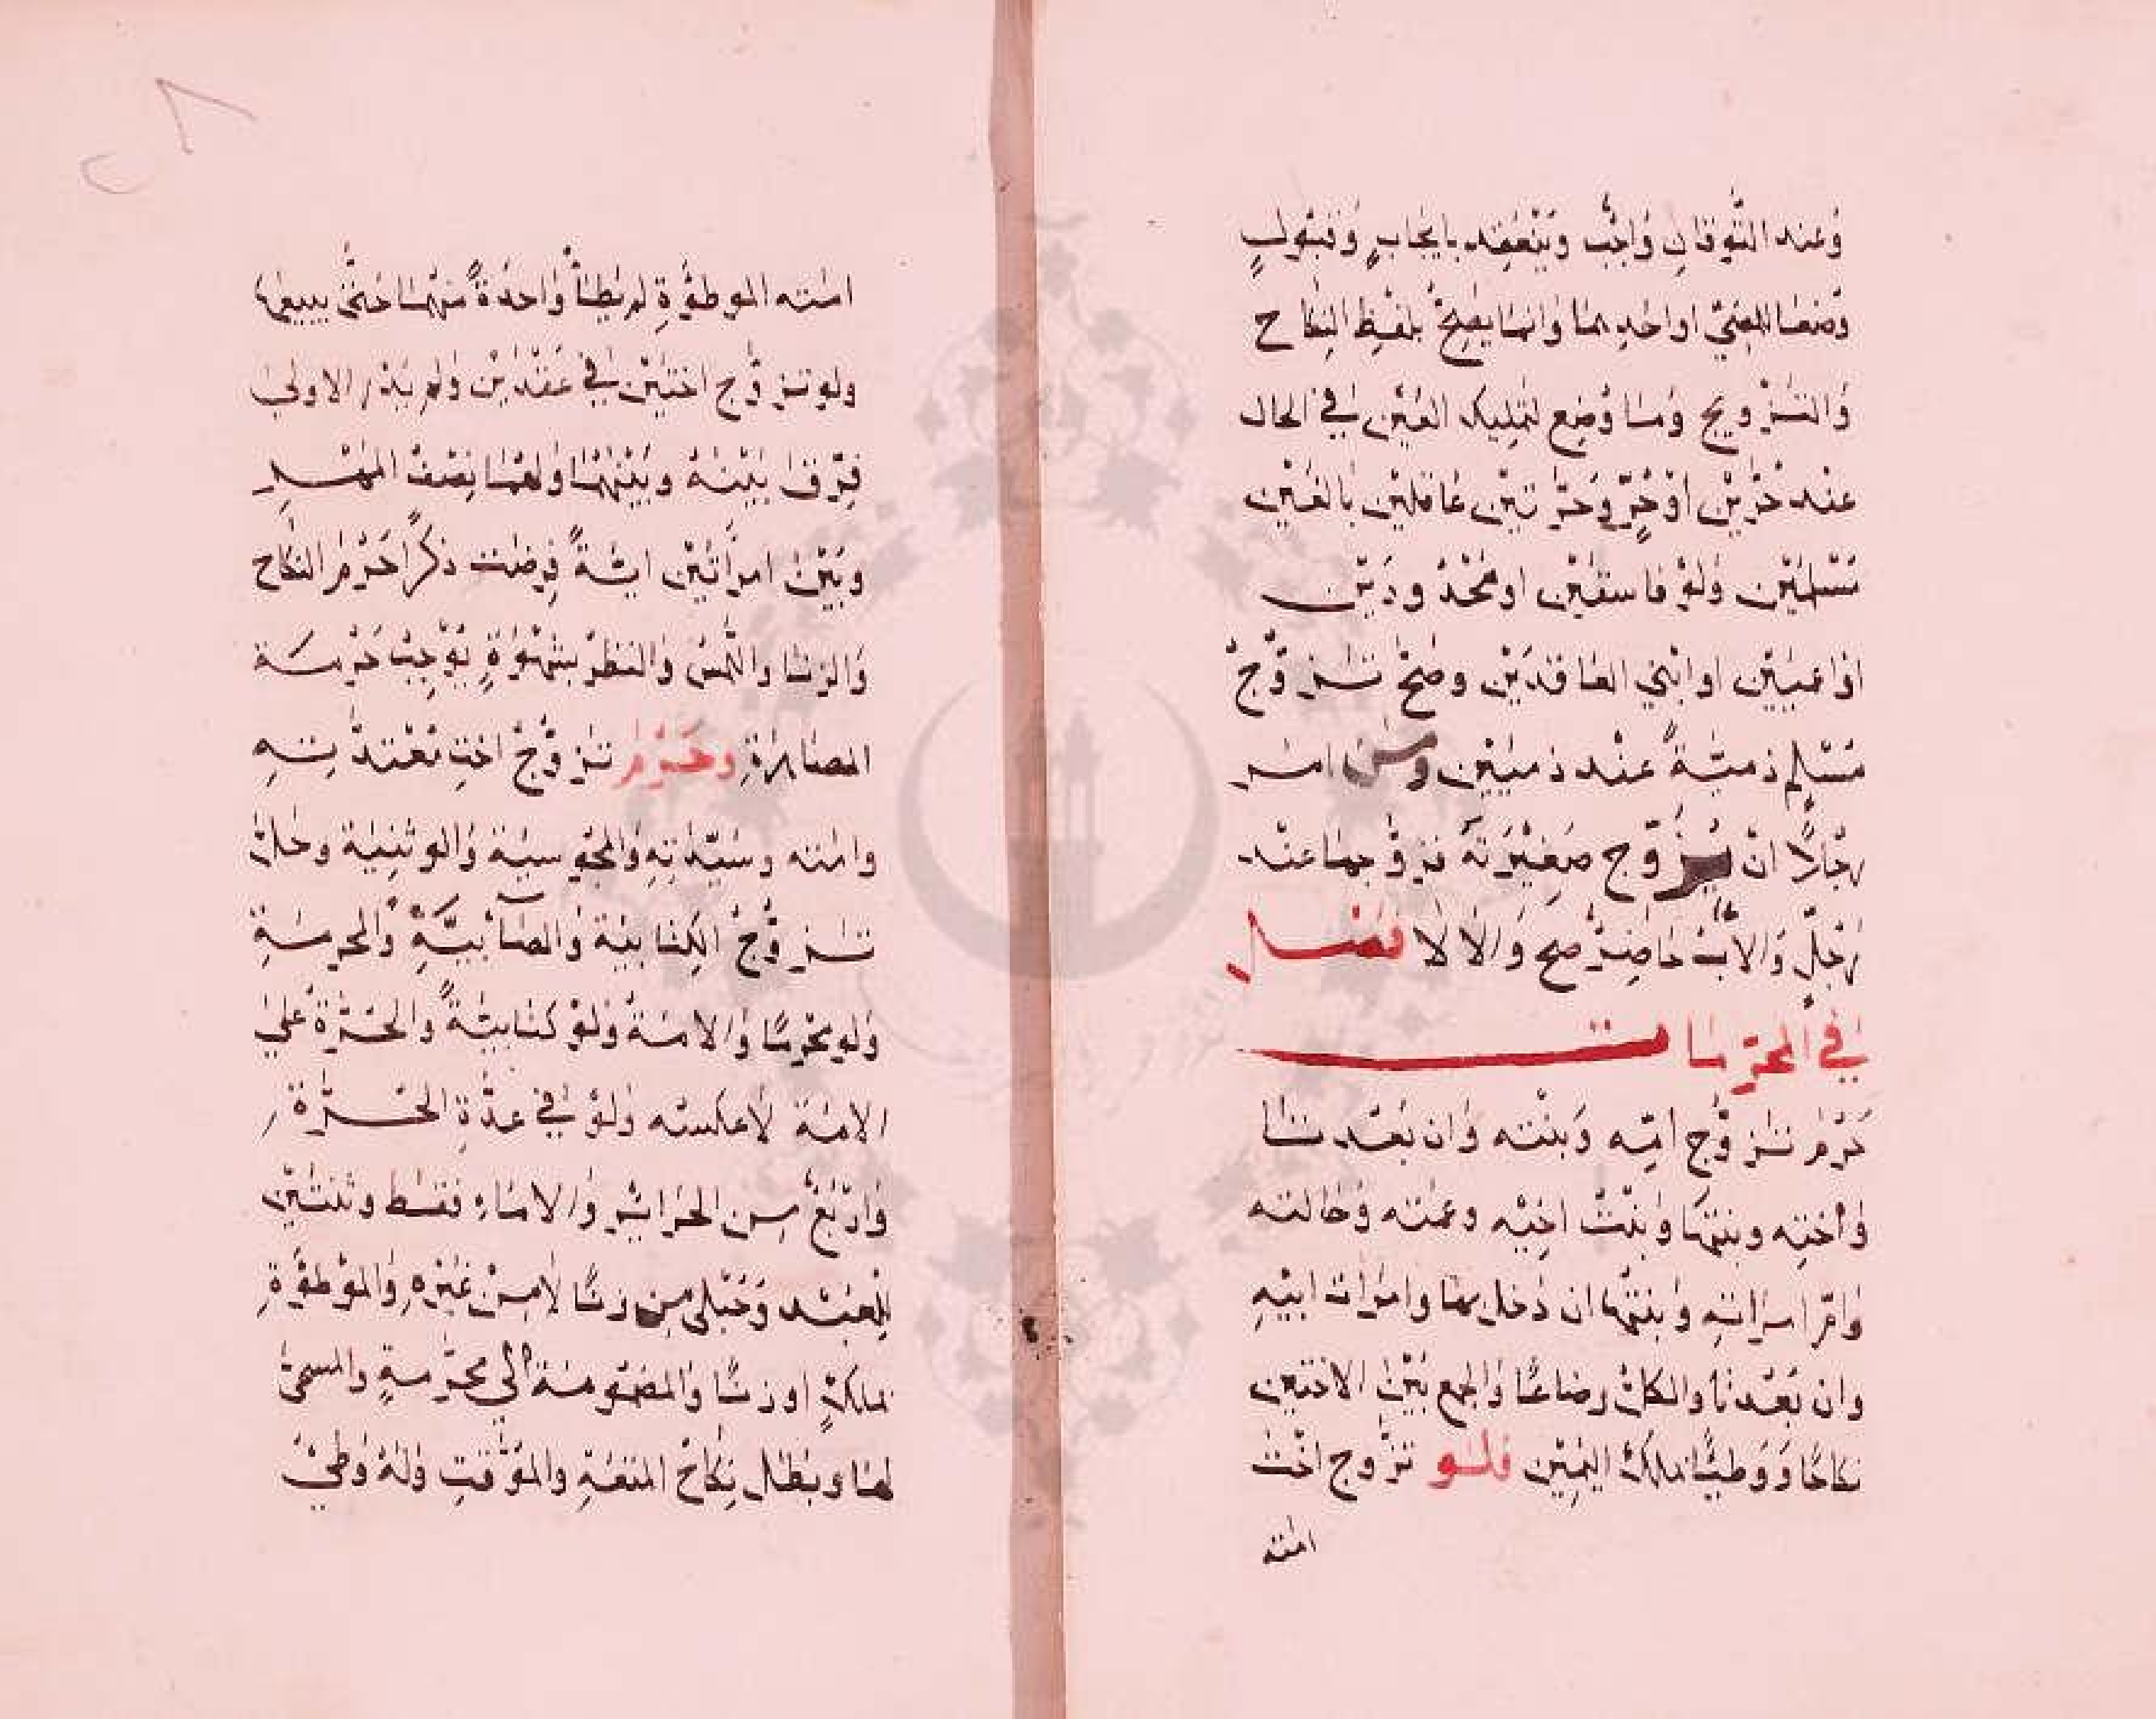 وَعند التَّوقانِ وَاجبٌ وَيَنْعَقِد بايجابٍ وَقبُولٍ
وُضعَا للمضيّ او احَدِهمَا وَانما يصِحُّ بلفظِ النِكاح
وَالتَّزْويج وَمَا وُضِع لتمليك العَيْن في الحال
عنْد حُرَّيْن اوْ حُرٍّ وَحرّتين عَاقلين بالغَيْن
مُسْلمَيْن وَلَوْ فاسقَيْن او محْدُودَيْن
اوْ اعميَيْن او ابْني العَاقدَيْن وصَحَّ تَزوّجُ
مُسْلِم ذميَّةً عنْد ذميّيْن ومن امر
رجُلًا انْ يُزَوّج صَغِيْرَتَهُ فزوّجهَا عنْد
رَجُلٍ وَالابُ حَاضِرٌ صح وَالا لا فَصْل
في المحرّمات
حَرُمَ تَزوّج امّه وَبنْته وَان بَعُدتَا
وَأخته وبنتهَا وَبِنْت اخِيْه وعمّته وَخالته
وَامّ امرأته وَبنتها ان دَخل بهَا وامرأت ابيْهِ
وان بَعُدتَا والكلُّ رضاعًا وَالجمع بَيْنَ الاختين
نكاحًا وَوَطيًّا بملك اليَمِيْن فلو تزَوّج اخْت
امته
امَته الموطوْءَةِ لم يَطأْ وَاحدَةً منهمَا حَتّٰى يبيعها
ولو تزوَّج اختَيْن في عَقْدَيْن وَلم يَدْر الاولى
فرّق بيْنهُ وبَيْنهُمَا وَلهمَا نصْفُ المَهْر
وبَيْنَ امرأتَيْن ايَّةً فرضت ذكرًا حَرُمَ النكاح
وَالزنَا وَاللّمسُ وَالنظرُ بشَهْوَةٍ يُوْجِبُ حُرْمَة
المصَاهرةِ وحَرُمَ تزوّجُ اختِ معْتدَّتِهِ
وامَته وسَيّدَتِهِ وَالمجوسيَة وَالوثنِيَة وحَلَّ
تَزوُّجُ الكِتابيَة وَالصَابيَّةِ وَالمحرمَةِ
وَلو محْرمًا وَالامَةُ وَلوْ كتابيَّةً وَالحُرّةُ عَلى
الامَة لَا عكسه وَلوْ في عدَّةِ الحُرَّة
وَارْبَعٌ من الحَرَائر وَالامَاءِ فقط وثنتَيْن
لِلعَبْد وَحُبْلى من زنًا لَا مِنْ غيْرِهِ وَالموْطُوْءَةِ
بملكٍ او زنًا وَالمضمُومَةُ الي محرّمةٍ وَالمسمّى
لهَا وَبطَل نِكَاحُ المتعَةِ وَالمؤقتِ وَلهُ وَطْيُ